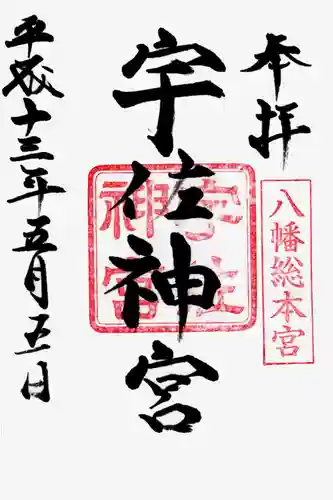 奉拝
八幡総本宮
宇佐神宮
宇佐
神宮
平成十三年五月五日